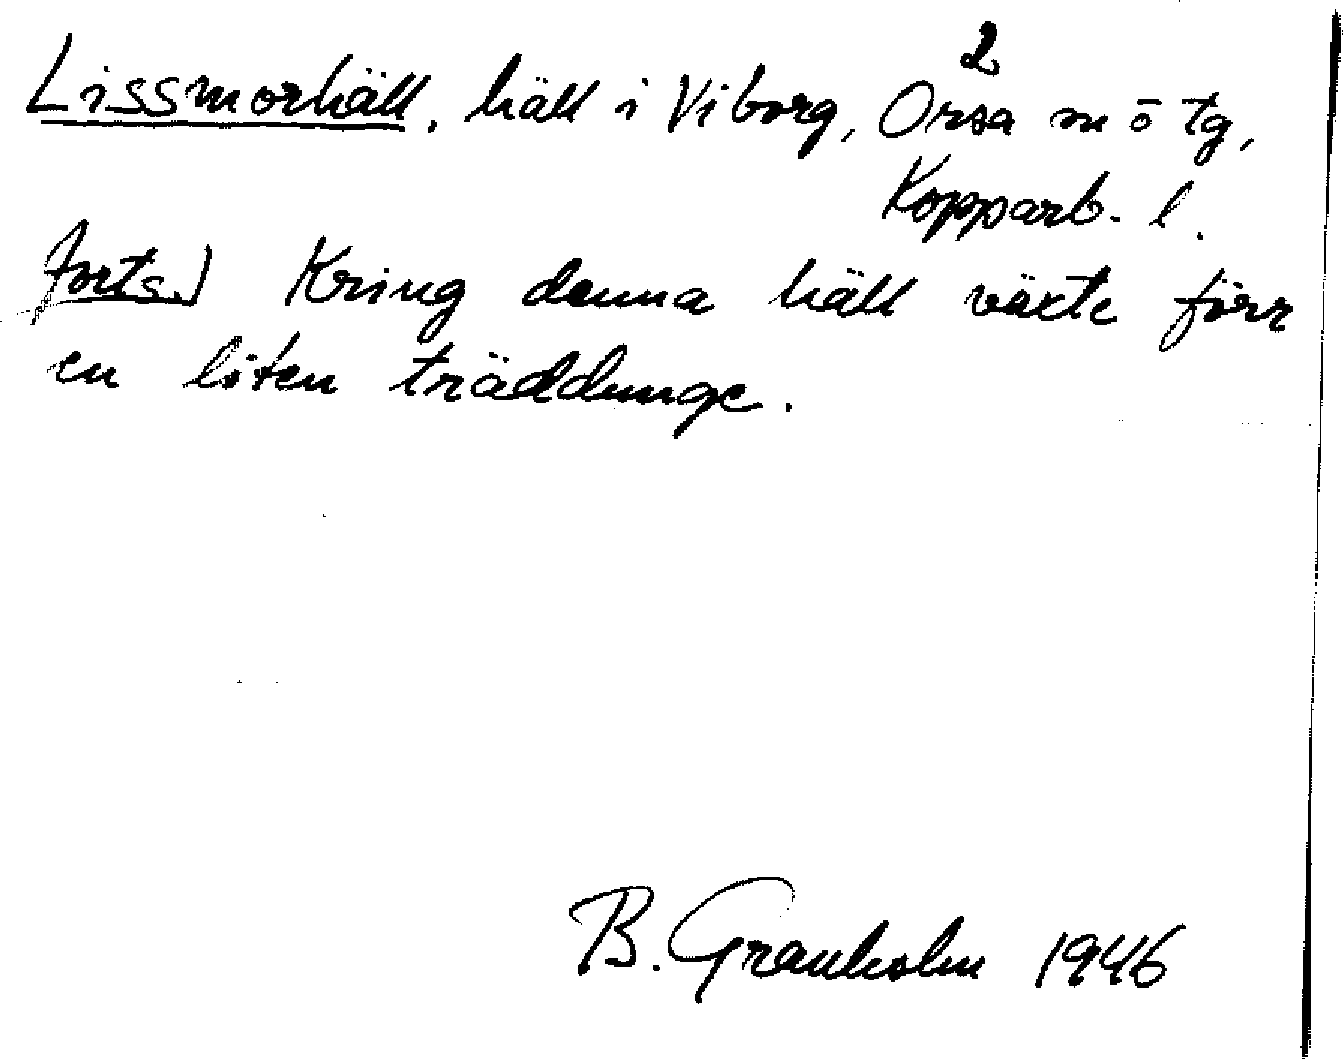 2
Lissmorhäll, häll i Viborg, Orsa m ö tg,
Kopparb. l.
Forts.) Kring denna häll växte förr
en liten träddunge.
B. Granholm 1946